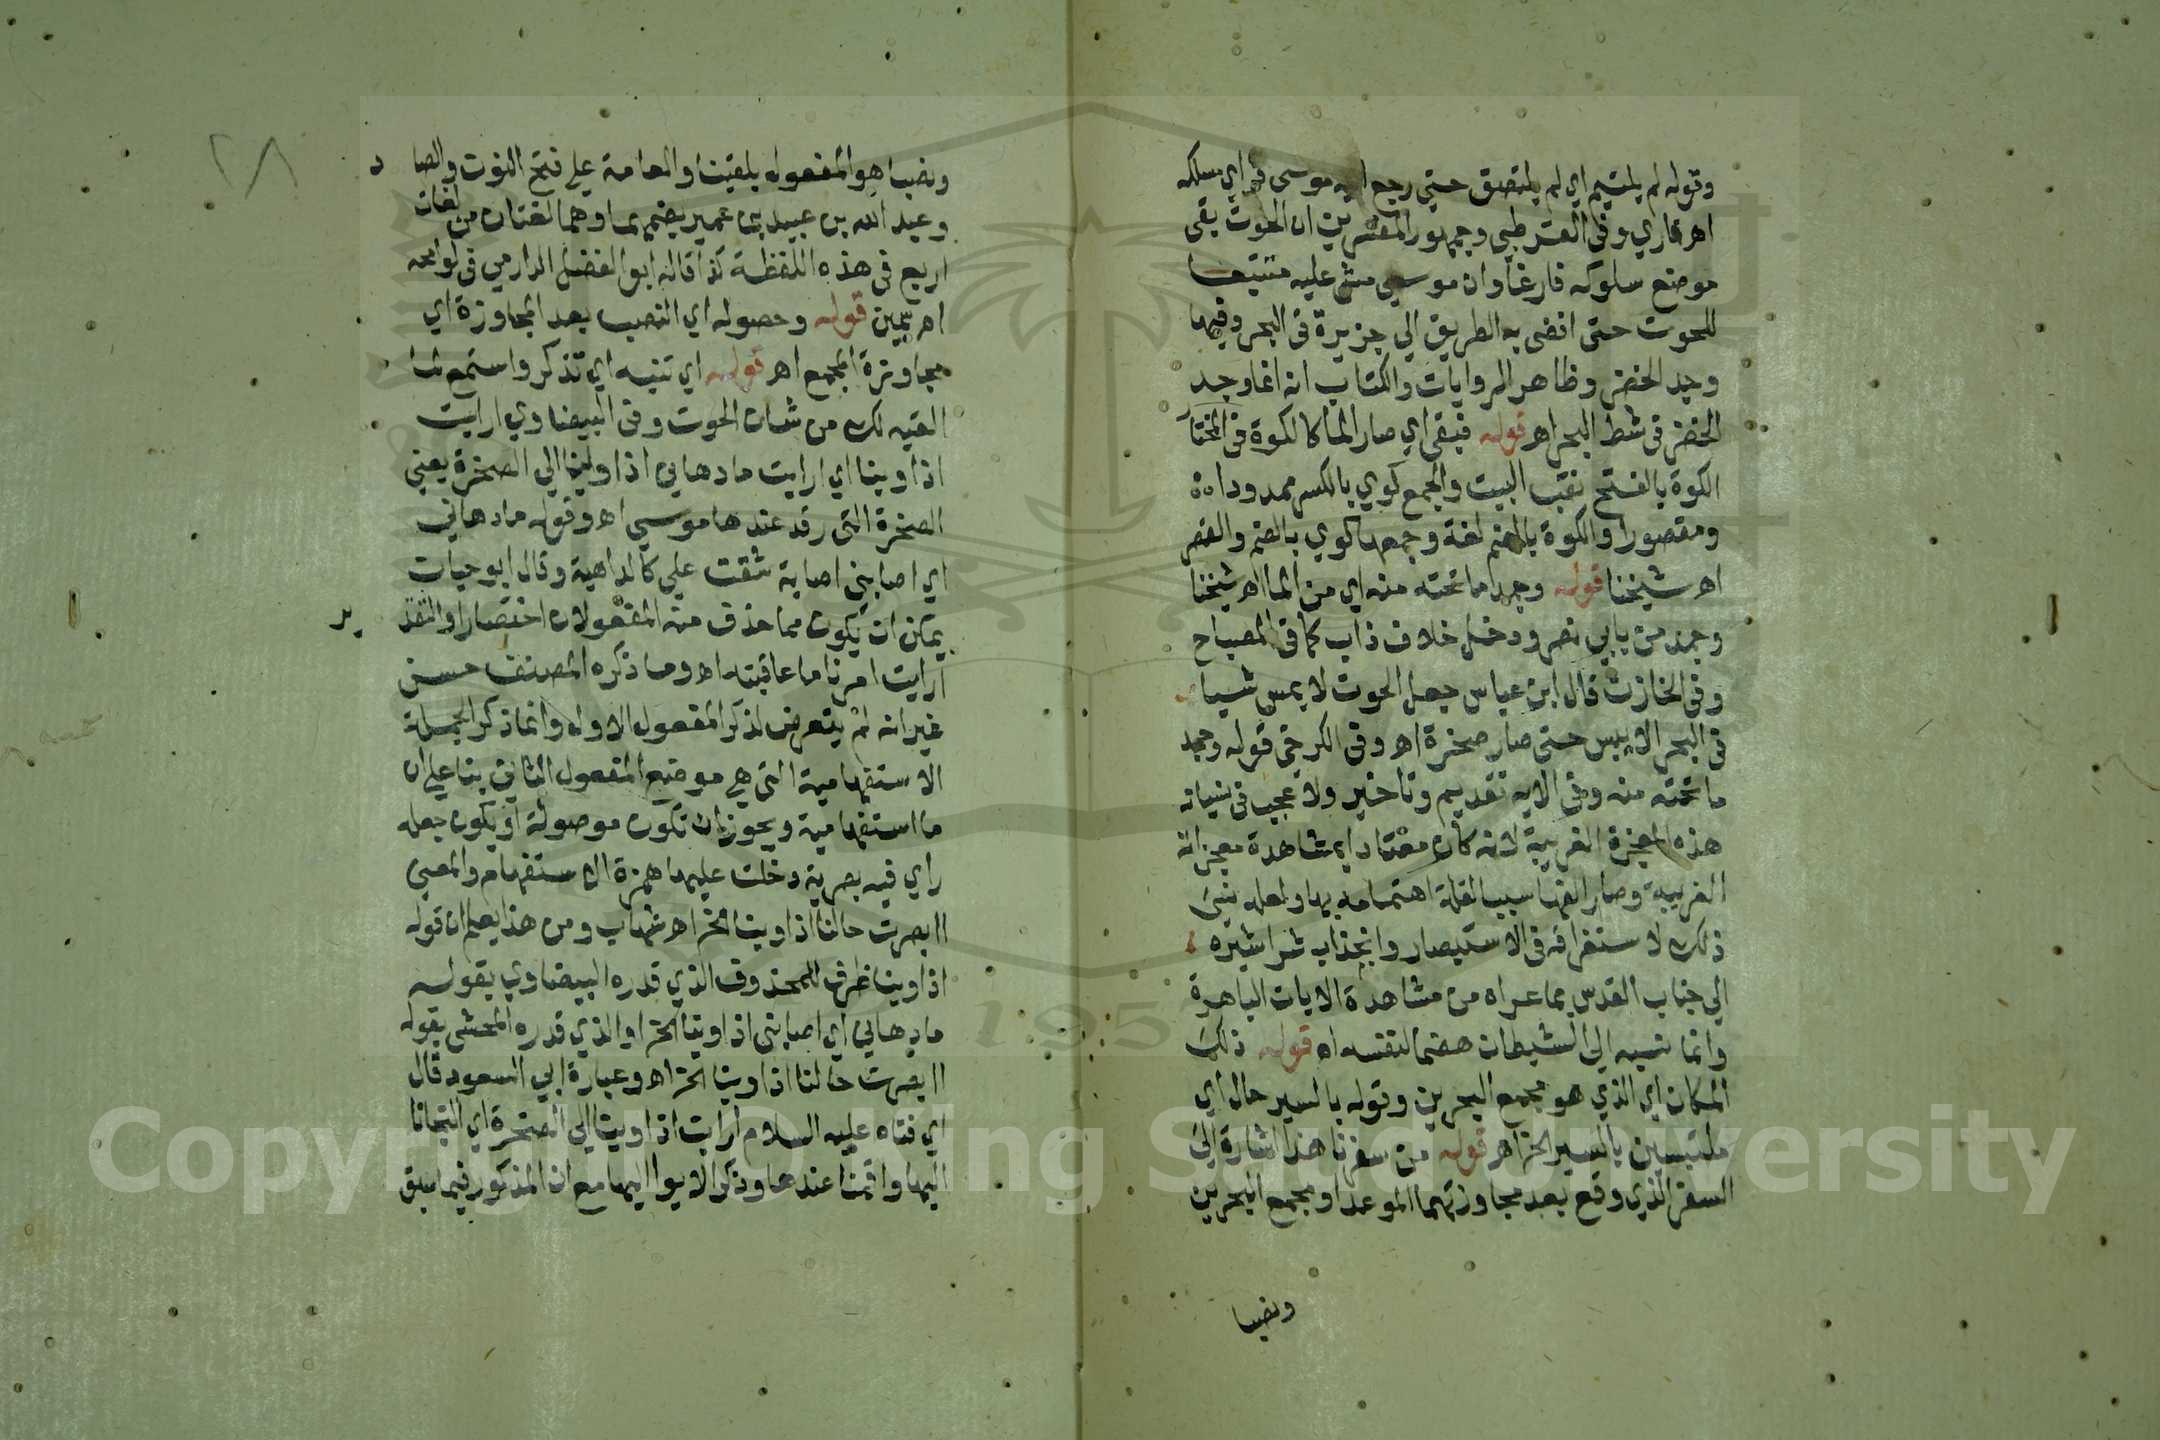 وقوله لم يلتيم اي لم يلتصق حتي رجع اليه موسي فراي مسلكه
اهـ قاري وفي القرطبي وجمهور المفسرين ان الحوت بقي
موضع سلوكه فارغا وان موسي مشي عليه متتبعا
للحوت حتى افضى به الطريق الي جزيرة في البحر وفيها
وجد الخضر وظاهر الروايات والكتاب انه انما وجد
الخضر في شط البحر اهـ قوله فبقي اي صار الما كالكوة في المختار
الكوة بالفتح نقب البيت والجمع كوي بالكسر ممدودا
ومقصورا والكوة بالضم لغة وجمعها كوي بالضم والقصر
اهـ شيخنا قوله وجمد ما تحته منه اي من الما اهـ شيخنا
وجمد من بابي نصر ودخل خلاف ذاب كما في المصباح
وفي الخازن قال ابن عباس جعل الحوت لا يمس شيا
في البحر الا يبس حتى صار صخرة اهـ وفي الكرخي قوله وجمد
ما تحته منه وفي الاية تقديم وتاخير ولا عجب في نسيانه
هذه المعجزة الغريبة لانه كان معتادا بمشاهدة معجزاته
الغريبة وصار الفها سببا لقلة اهتمامه بها ولعله نسي
ذلك لاستغراقه في الاستبصار وانجذاب شراشره
الي جناب القدس بما عراه من مشاهدة الايات الباهرة
وانما نسبه الي الشيطان هضما لنفسه اهـ قوله ذلك
المكان اي الذي هو مجمع البحرين وقوله بالسير حال اي
ملتبسين بالسير الخ اهـ قوله من سفرنا هذا اشارة الي
السفر الذي وقع بعد مجاوزتهما الموعد او مجمع البحرين
ونصبا
٢٨
ونصبا هو المفعول بلقينا والعامة علي فتح النون والصاد
وعبد الله بن عبيد بن عمير بضمهما وهما لغتان من لغات
اربع في هذه اللفظة كذا قاله ابو الفضل الرازي في لوامحه
اهـ سمين قوله وحصوله اي النصب بعد المجاوزة اي
مجاوزة المجمع اهـ قوله اي تنبه اي تذكر واستمع لما
القيه لك من شان الحوت وفي البيضاوي ارايت
اذ اوينا اي ارايت ما دهاني اذ اوينا الي الصخرة يعني
الصخرة التي رقد عندها موسي اهـ وقوله ما دهاني
اي اصابني اصابة شقت علي كالداهية وقال ابو حيان
يمكن ان يكون مما حذف منه المفعولان اختصارا والتقدير
ارايت امرنا ما عاقبته اهـ وما ذكره المصنف حسن
غير انه لم يتعرض لذكر المفعول الاول وانما ذكر الجملة
الاستفهامية التي هي موضع المفعول الثاني بنا علي ان
ما استفهامية ويجوز ان تكون موصولة او يكون جعله
راي فيه بصرية دخلت عليها همزة الاستفهام والمعني
اابصرت حالنا اذ اوينا الخ اهـ شهاب ومن هذا يعلم ان قوله
اذ اوينا ظرف للمحذوف الذي قدره البيضاوي بقوله
ما دهاني اي اصابني اذ اوينا الخ او الذي قدره المحشي بقوله
اابصرت حالنا اذ اوينا الخ اهـ وعبارة ابي السعود قال
اي فتاه عليه السلام ارايت اذ اوينا الي الصخرة اي التجانا
اليها واقمنا عندها وذكر الايوا اليها مع ان المذكور فيما سبق
1957
Copyright © King Saud University